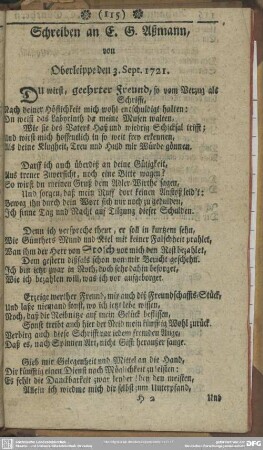 (115)
Schreiben an E. G. Aßmann,
von
Oberleippe den 3. Sept. 1721.
Du wirst, geehrter Freund, so vom Verzug als
Schrifft,
Nach deiner Höflichkeit mich wohl entschuldigt halten:
Du weist das Labyrinth da meine Musen walten,
Wie sie des Vaters Haß und wiedrig Schicksal trifft;
Und wirst mich hoffentlich in so weit frey erkennen,
Als deine Klugheit, Treu und Huld mir Würde gönnen.
Darff ich auch überdiß an deine Gütigkeit,
Aus treuer Zuversicht, noch eine Bitte wagen?
So wirst du meinen Gruß dem Alder Wirthe sagen,
Und sorgen, daß mein Ruff dort keinen Anstoß leid't:
Beweg ihn durch dein Wort sich nur noch zu gedulden,
Ich sinne Tag und Nacht auf Tilgung dieser Schulden.
Denn ich verspreche theur, er soll in kurtzem sehn,
Wie Günthers Mund und Kiel mit keiner Falschheit prahlet,
Wan ihm der Herr von Brosch vor mich den Rest bezahlet,
Dem gestern deßfals schon von mir Bericht geschehn.
Ich bin jetzt zwar in Noth, doch sehr dahin besorget,
Wie ich bezahlen will, was ich vor aufgeborget.
Erzeige werther Freund, mir auch diß Freundschaffts-Stück,
Und laße niemand sonst, wo ich jetzt lebe wissen,
Noch, daß die Leibnitze auf mein Gesuch beflissen,
Sonst treibt auch hier der Neid mein künfftig Wohl zurück.
Verbirg auch diese Schrifft vor jedem fremden Auge,
Daß es, nach Spinnen Art, nicht Gifft heraußer sauge.
Gieb mir Gelegenheit und Mittel an die Hand,
Dir künfftig einen Dienst nach Möglichkeit zu leisten:
Es fehlt die Danckbarkeit zwar leyder! bey den meisten,
Allein ich wiedme mich dir selbst zum Unterpfand,
H 2 Und